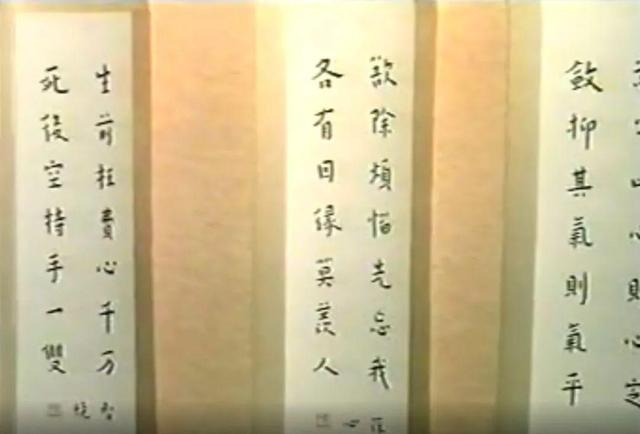 心則心定
斂抑其氣則氣平
欲除煩惱先忘我
各有因緣莫羨人
生前枉費心千万
死後空持手一雙